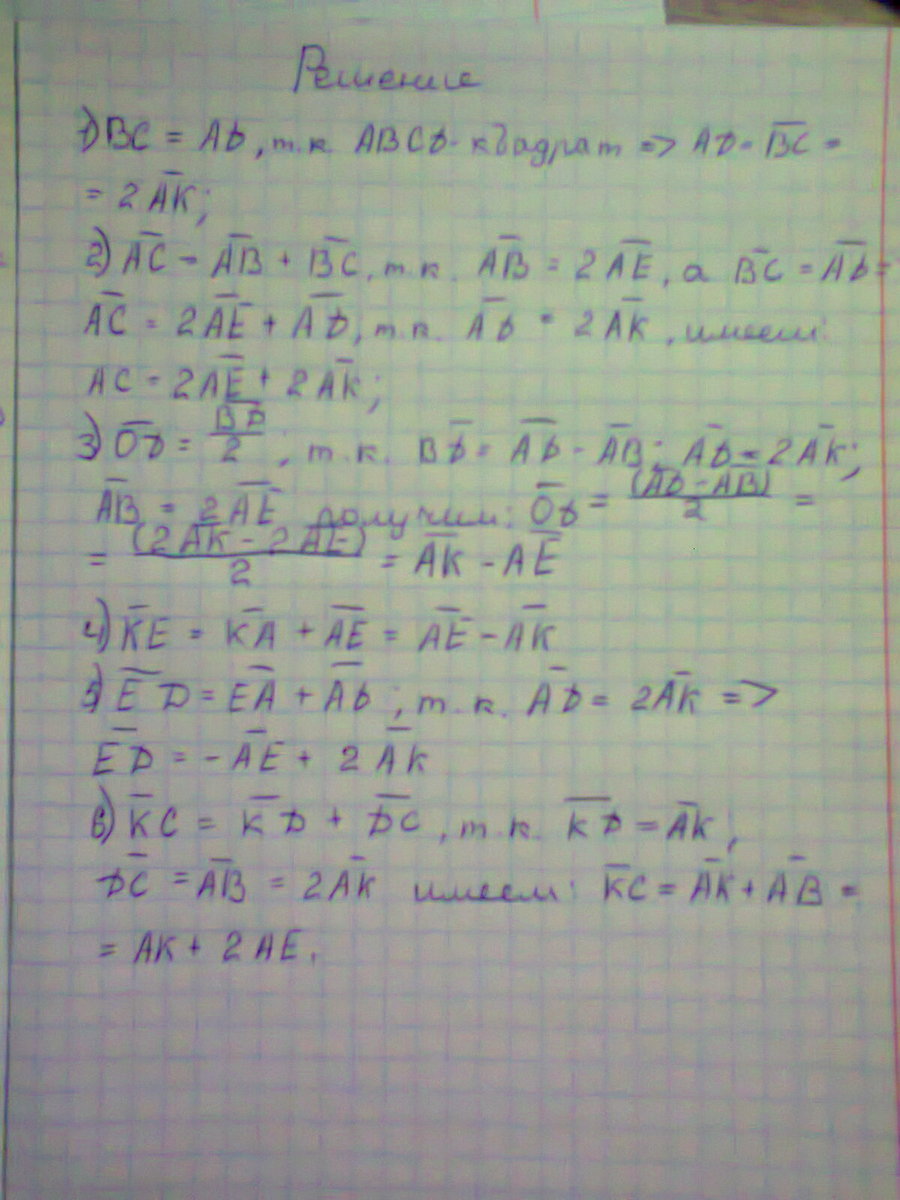 Решение
1) BC = AD, т.к. ABCD - квадрат => AD = B̅C̅ =
= 2A̅K̅;
2) A̅C̅ = A̅B̅ + B̅C̅, т.к. A̅B̅ = 2A̅E̅, а B̅C̅ = A̅D̅ =
A̅C̅ = 2A̅E̅ + A̅D̅, т.к. A̅D̅ = 2A̅K̅, имеем:
AC = 2A̅E̅ + 2A̅K̅;
3) O̅D̅ = B̅D̅/2; т.к. BD̅ = A̅D̅ - A̅B̅; A̅D̅ = 2A̅K̅;
A̅B̅ = 2A̅E̅ получим: O̅D̅ = (A̅D̅ - A̅B̅)/2 =
= (2A̅K̅ - 2A̅E̅)/2 = A̅K̅ - AE̅
4) K̅E = K̅A̅ + A̅E̅ = A̅E̅ - A̅K̅
5) E̅D̅ = E̅A̅ + A̅D̅; т.к. A̅D̅ = 2A̅K̅ =>
E̅D̅ = -A̅E̅ + 2A̅K̅
6) K̅C = K̅D̅ + D̅C̅, т.к. K̅D̅ = A̅K̅;
D̅C̅ = A̅B̅ = 2A̅K̅ имеем: K̅C = A̅K̅ + A̅B̅ =
= AK + 2AE.